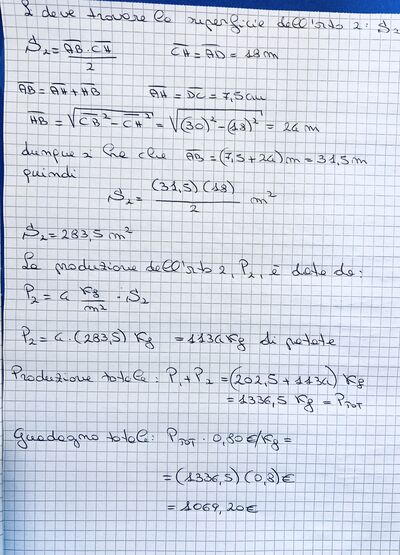 Si deve trovare la superficie dell'orto 2: S₂
S₂ = AB · CH / 2 CH = AD = 18 m
AB = AH + HB AH = DC = 7,5 cm
HB = √CB² - CH² = √(30)² - (18)² = 24 m
dunque si ha che AB = (7,5 + 24) m = 31,5 m
quindi
S₂ = (31,5) (18) / 2 m²
S₂ = 283,5 m²
La produzione dell'orto 2, P₂, è data da:
P₂ = 4 Kg/m² · S₂
P₂ = 4 · (283,5) Kg = 1134 Kg di patate
Produzione totale: P₁ + P₂ = (202,5 + 1134) Kg
= 1336,5 Kg = PTOT
Guadagno totale: PTOT · 0,80 €/Kg =
= (1336,5) (0,8) €
= 1069,20 €